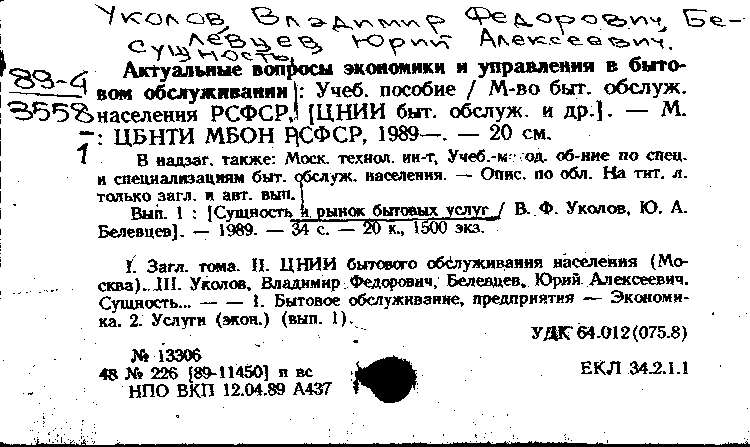 Уколов, Владимир Федорович, Бе-
левцев Юрий Алексеевич.
Сущность
89-4
3558
1
Актуальные вопросы экономики и управления в быто-
вом обслуживании : Учеб. пособие / М-во быт. обслуж.
населения РСФСР, [ЦНИИ быт. обслуж. и др.]. — М.
: ЦБНТИ МБОН РСФСР, 1989—. — 20 см.
В надзаг. также: Моск. технол. ин-т, Учеб.-метод. об-ние по спец.
и специализациям быт. обслуж. населения. — Опис. по обл. На тит. л.
только загл. и авт. вып.
Вып. 1 : [Сущность и рынок бытовых услуг / В. Ф. Уколов, Ю. А.
Белевцев]. — 1989. — 34 с. — 20 к., 1500 экз.
I. Загл. тома. II. ЦНИИ бытового обслуживания населения (Мо-
сква). III. Уколов, Владимир Федорович, Белевцев, Юрий Алексеевич.
Сущность... — — 1. Бытовое обслуживание, предприятия — Экономи-
ка. 2. Услуги (экон.) (вып. 1).
УДК 64.012(075.8)
№ 13306
48 № 226 [89-11450] п вс
ЕКЛ 34.2.1.1
НПО ВКП 12.04.89 А437